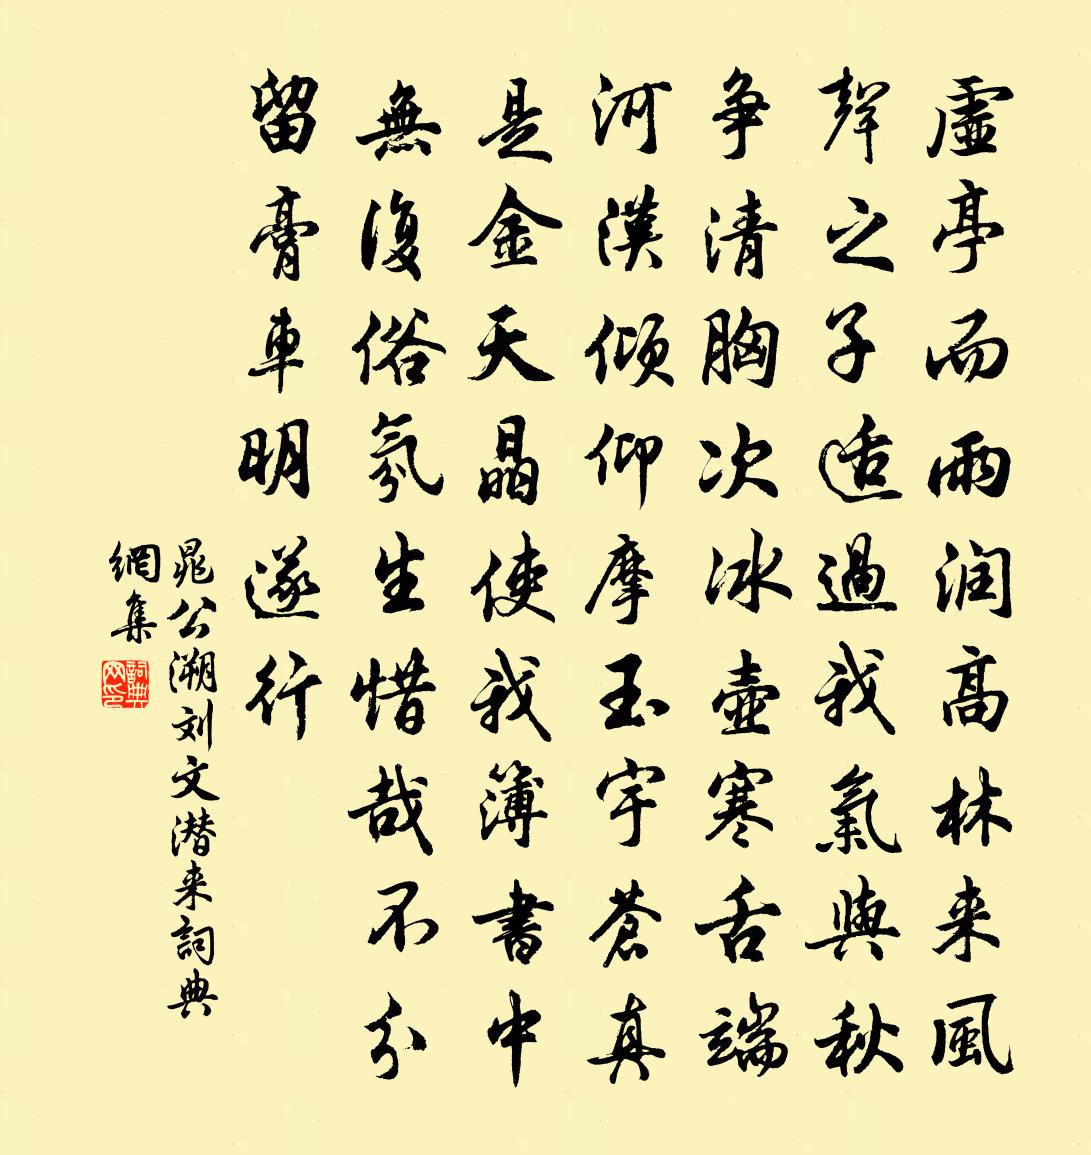 虛亭而雨润高林来風
聲之子适過我氣與秋
争清胸次冰壺寒舌端
河漢傾仰摩玉宇蒼真
是金天晶使我簿書中
無復俗氛生惜哉不分
留膏車明遂行
晁公溯刘文潜来詞典
網集
詞典
网印